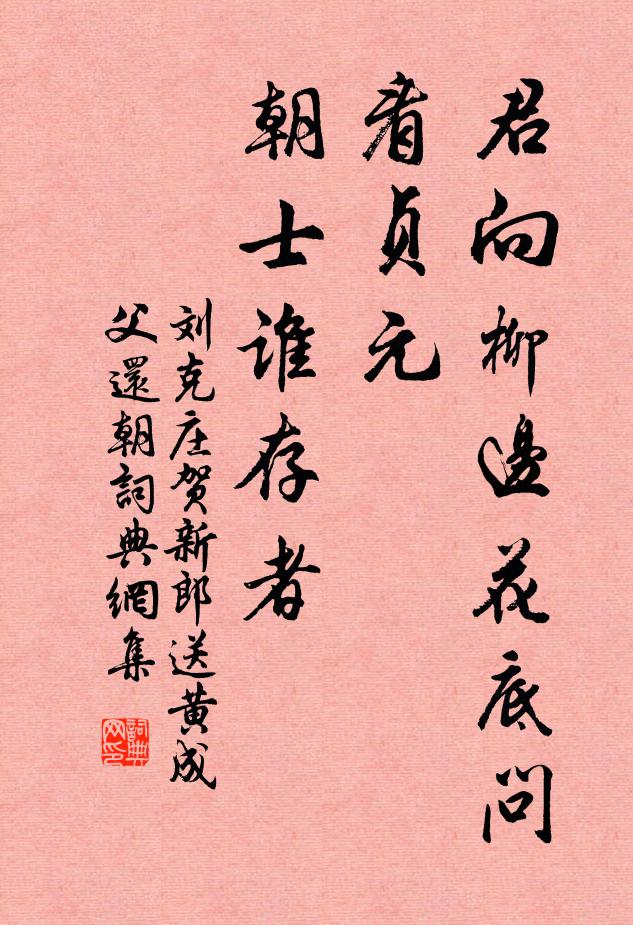 君向柳邊花底問
看貞元
朝士谁存者
刘克庄贺新郎送黄成
父還朝詞典網集
詞典网印